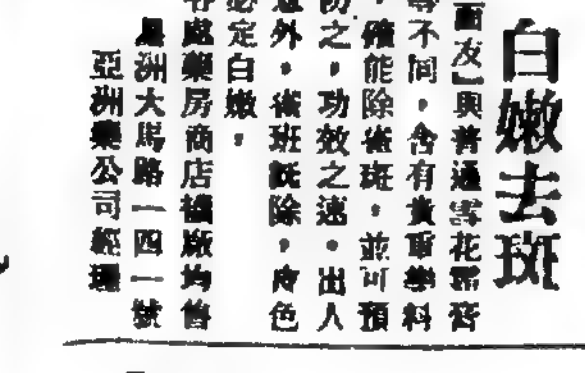 白嫩去斑
面友】與普通雪花霜膏
等不同，含有貴重藥料
，確能除雀斑，並可預
防之，功效之速，出人
意外，雀斑既除，皮色
必定白嫩，
各處藥房商店攤販均售
星洲大馬路一四一號
亞洲藥公司經理